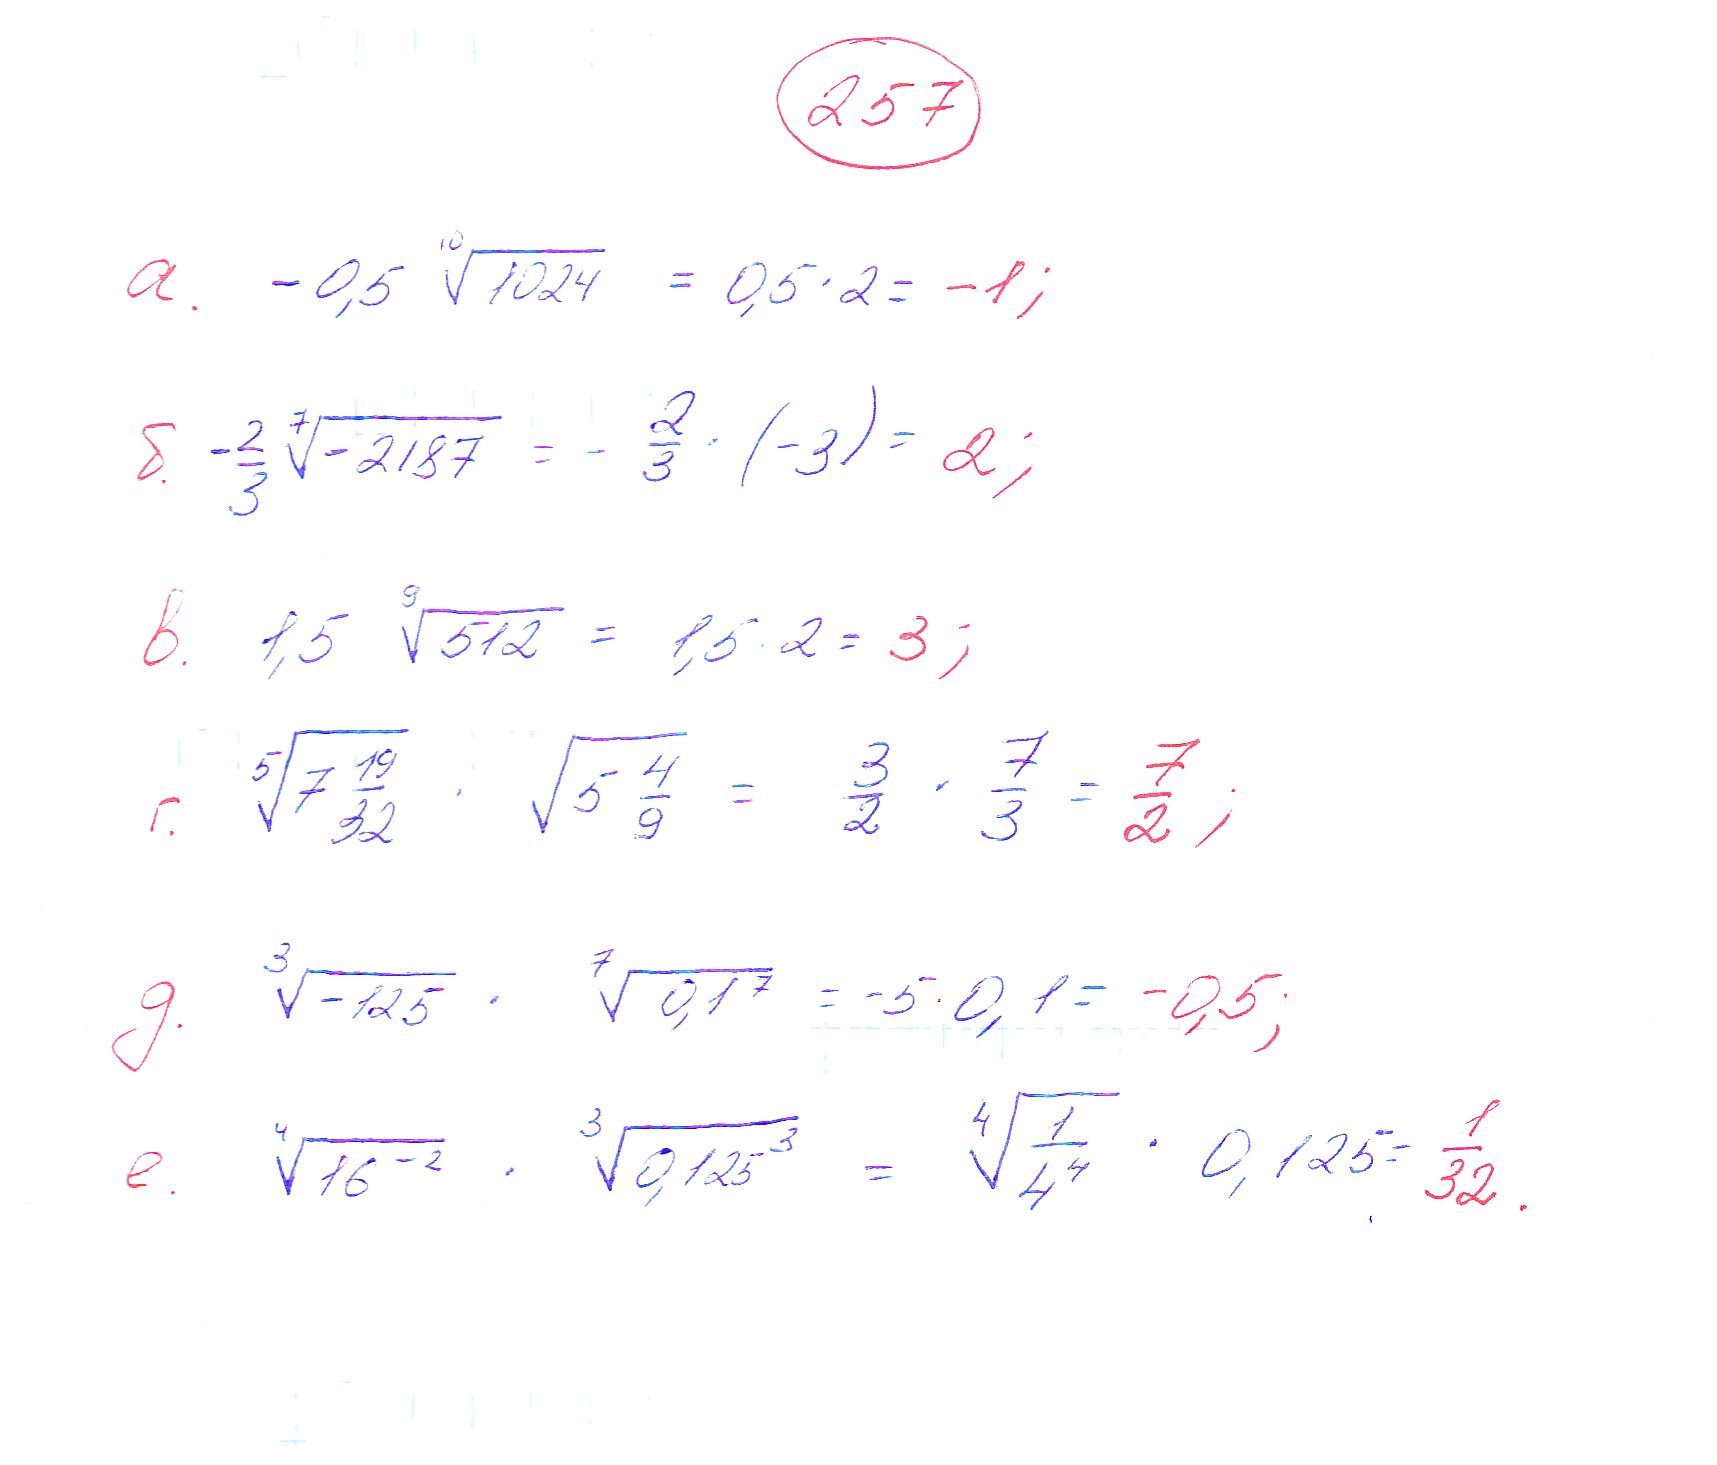 257
а. -0,5 ¹⁰√1024 = 0,5·2 = -1;
б. -2/3 ⁷√-2187 = - 2/3 · (-3) = 2;
в. 1,5 ⁹√512 = 1,5·2 = 3;
г. ⁵√7 19/32 · √5 4/9 = 3/2 · 7/3 = 7/2;
д. ³√-125 · ⁷√0,1⁷ = -5·0,1 = -0,5;
е. ⁴√16⁻² · ³√0,125³ = ⁴√1/4⁴ · 0,125 = 1/32.